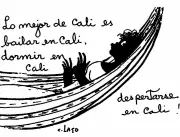 Lo mejor de Cali es
bailar en Cali,
dormir en
Cali
despertarse
en Cali!